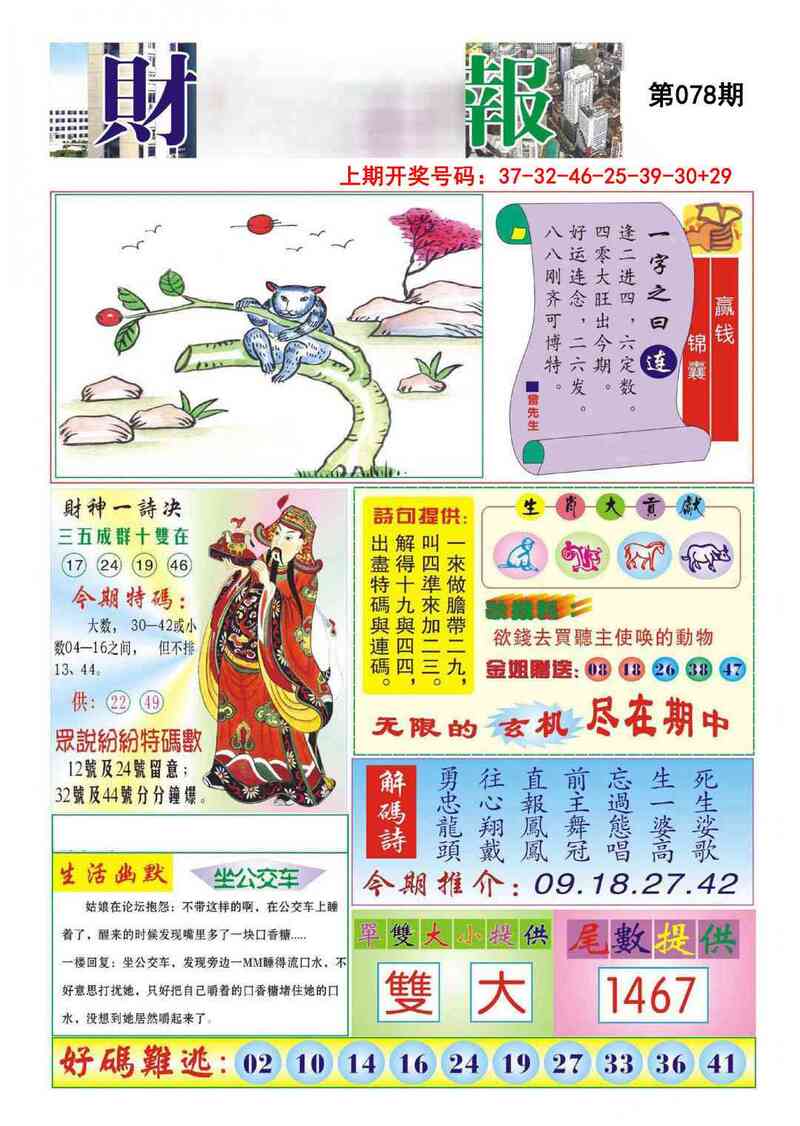 財
報
第078期
上期开奖号码：37-32-46-25-39-30+29
一字之曰
连
逢二进四，六定数。
四零大旺出今期。
好运连念，二六发。
八八刚齐可博特。
曾先生
赢钱
锦囊
財神一詩决
三五成群十雙在
17 24 19 46
今期特碼：
大数，30—42或小
数04—16之间，但不排
13、44。
供：22 49
眾說紛紛特碼數
12號及24號留意；
32號及44號分分鐘爆。
詩句提供：
一來做膽帶二九，
叫四準來加二三。
解得十九與四四，
出盡特碼與連碼。
生肖大貢獻
欲錢去買聽主使唤的動物
金姐赠送：08 18 26 38 47
无限的玄机尽在期中
解碼詩
勇忠龍頭
往心翔戴
直報鳳鳳
前主舞冠
忘過態唱
生一婆高
死生娑歌
今期推介：09.18.27.42
生活幽默
坐公交车
姑娘在论坛抱怨：不带这样的啊，在公交车上睡
着了，醒来的时候发现嘴里多了一块口香糖.....
一楼回复：坐公交车，发现旁边一MM睡得流口水，不
好意思打扰她，只好把自己嚼着的口香糖堵住她的口
水，没想到她居然嚼起来了。
單雙大小提供
雙 大
尾數提供
1467
好碼難逃：02 10 14 16 24 19 27 33 36 41